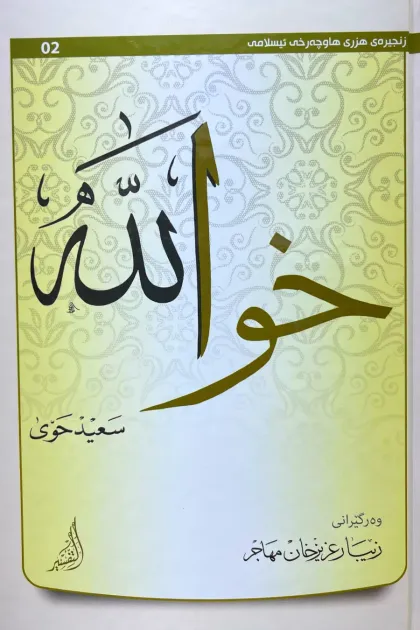 زنجیرەی هزری هاوچەرخی ئیسلامی
02
خوا
الله
سَعیٖدحَوّیٰ
وەرگێڕانی
زبیار عزیزخان مهاجر
التفسير